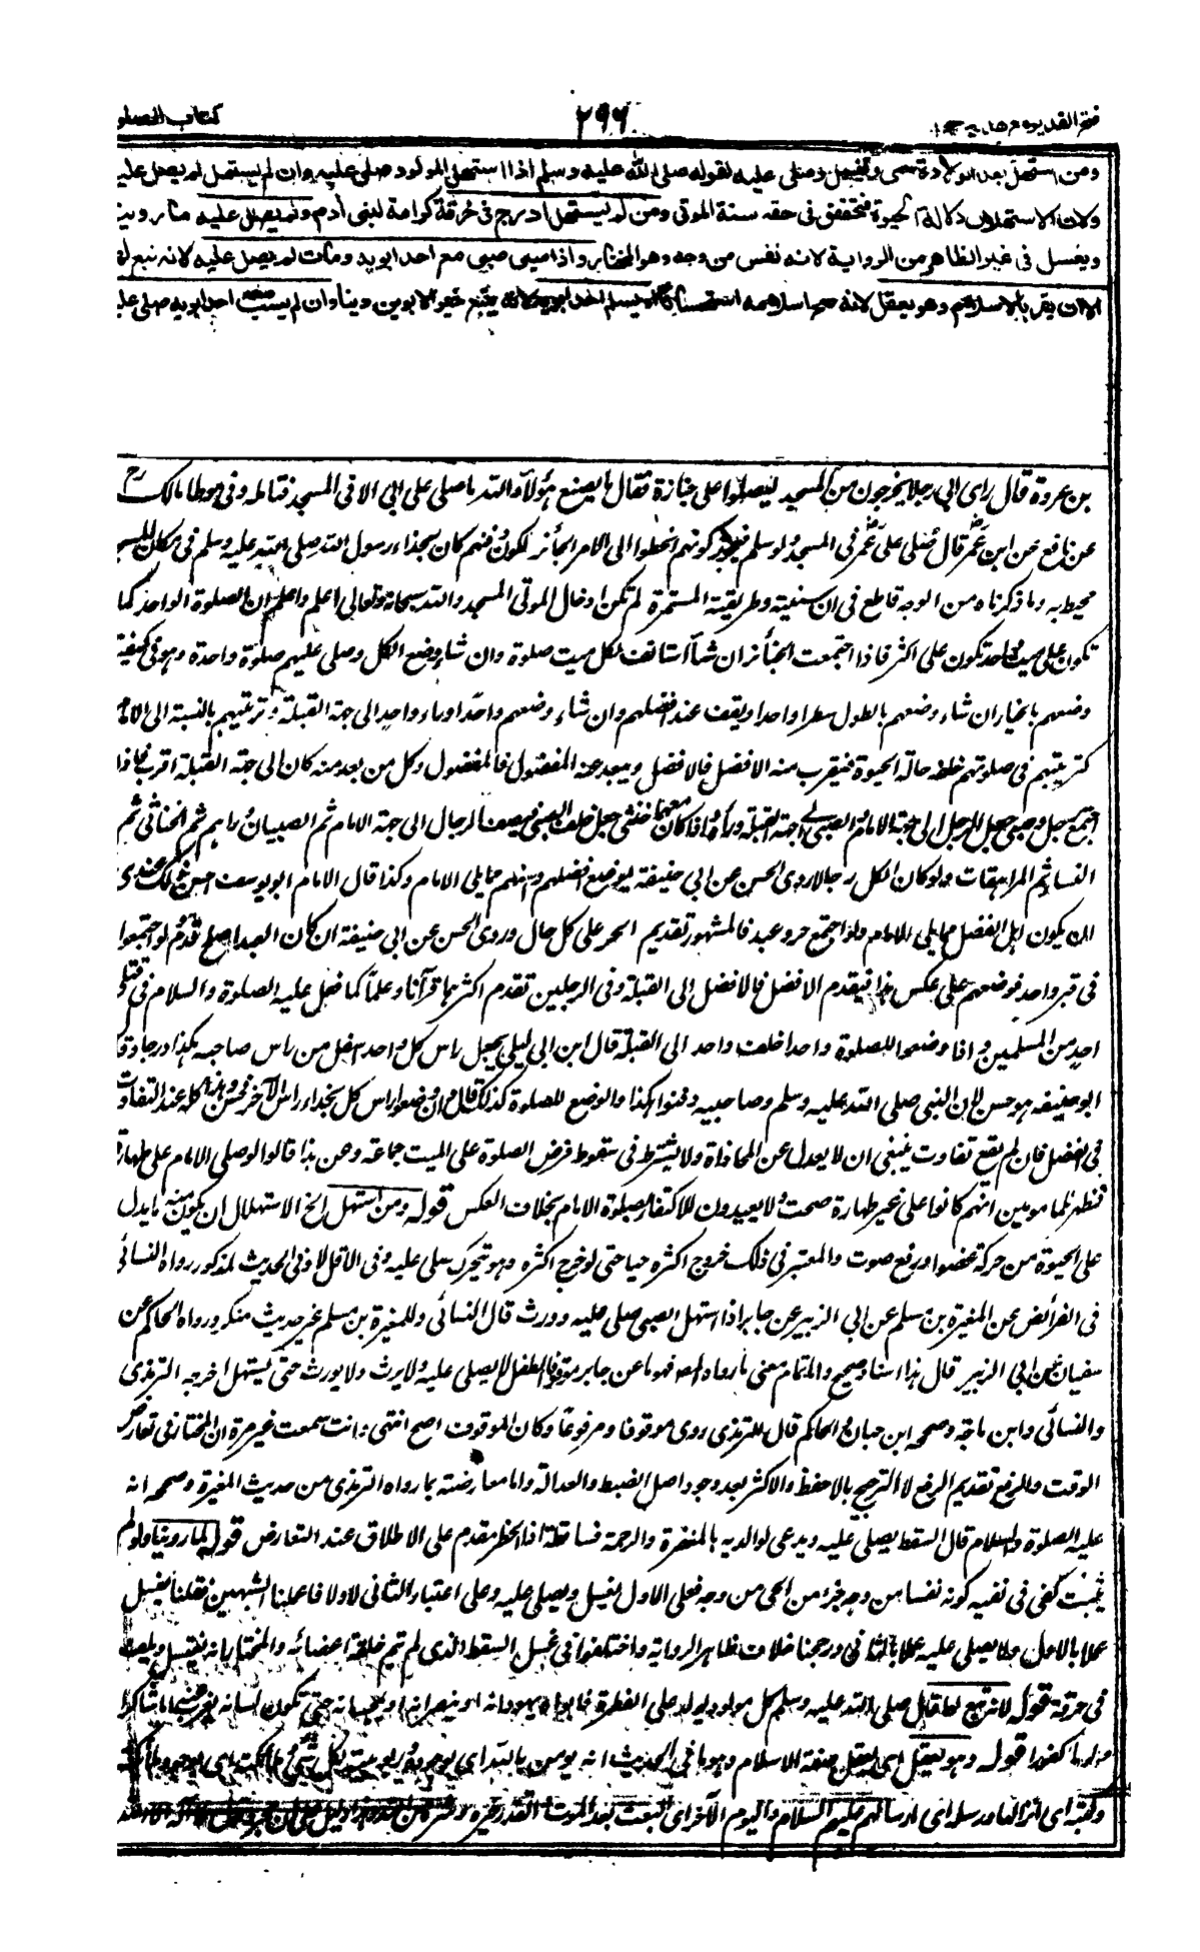 فتح القدير مع هدايه ج ١ ٢٩٦ كتاب الصلو
ومن استهل بعد الولادة سمى وغسل وصلى عليه لقوله صلى الله عليه وسلم اذا استهل المولود صلى عليه وان لم يستهل لم يصل عليه
ولان الاستهلال دلالة الحيوة فتحقق فى حقه سنة الموتى ومن لم يستهل ادرج فى خرقة كرامة لبنى آدم ولم يصل عليه لما روينا
ويغسل فى غير الظاهر من الرواية لانه نفس من وجه وهو المختار واذا سبى صبى مع احد ابويه ومات لم يصل عليه لانه تبع لهما
الا ان يقر بالاسلام وهو يعقل لانه صح اسلامه استحسانا او يسلم احد ابويه لانه يتبع خير الابوين دينا وان لم يسب معه احد ابويه صلى عليه
بن عروة قال راى ابى رجلا يخرجون من المسجد ليصلوا على جنازة فقال ما يصنع هؤلاء والله ما صلى على ابى الا فى المسجد فتامله وفى موطا مالك
عن نافع عن ابن عمر قال صلى على عمر فى المسجد ولو سلم فيجوز كونهم انحطوا الى الامر الجائز لكون دفنهم كان بحذاء رسول الله صلى الله عليه وسلم فى مكان المسجد
محيط به وما ذكرناه من الوجه قاطع فى ان سنيته وطريقته المستمرة لم تكن ادخال الموتى المسجد والله سبحانه وتعالى اعلم واعلم ان الصلوة الواحدة كما
تكون على ميت واحد تكون على اكثر فاذا اجتمعت الجنائز ان شاء استانف لكل ميت صلوة وان شاء وضع الكل وصلى عليهم صلوة واحدة وهو فى كيفية
وضعهم بالخيار ان شاء وضعهم بالطول سطرا واحدا ويقف عند افضلهم وان شاء وضعهم واحدا وراء واحد الى جهة القبلة وترتيبهم بالنسبة الى الامام
كترتيبهم فى صلوتهم خلفه حالة الحيوة فيقرب منه الافضل فالافضل ويبعد عنه المفضول فالمفضول وكل من بعد منه كان الى جهة القبلة اقرب فاذا
اجتمع رجل وصبى جعل الرجل الى جهة الامام والصبى الى جهة القبلة وراءه واذا كان معهما خنثى جعل خلف الصبى فيصف الرجال الى جهة الامام ثم الصبيان وراءهم ثم الخناثى ثم
النساء ثم المراهقات ولو كان الكل رجالا روى الحسن عن ابى حنيفة يوضع افضلهم واسنهم مما يلى الامام وكذا قال الامام ابو يوسف احسن ذلك عندى
ان يكون اهل الفضل مما يلى الامام ولو اجتمع حر وعبد فالمشهور تقديم الحر على كل حال وروى الحسن عن ابى حنيفة ان كان العبد اصلح قدم ولو اجتمعوا
فى قبر واحد فوضعهم على عكس هذا فيقدم الافضل فالافضل الى القبلة وفى الرجلين تقدم اكثرهما قرآنا وعلما كما فعل عليه الصلوة والسلام فى قتلى
احد من المسلمين واذا وضعوا للصلوة واحدا خلف واحد الى القبلة قال ابن ابى ليلى يجعل راس كل واحد اسفل من راس صاحبه هكذا درجا وقال
ابو حنيفة هو حسن لان النبى صلى الله عليه وسلم وصاحبيه دفنوا هكذا والوضع للصلوة كذلك قال وان وضعوا راس كل بحذاء راس الآخر فحسن وهذا كله عند التفاوت
فى الفضل فان لم يقع تفاوت ينبغى ان لا يعدل عن المحاذاة ولا يشترط فى سقوط فرض الصلوة على الميت جماعة وعن هذا قالوا لو صلى الامام على طهارة
فظهر للمامومين انهم كانوا على غير طهارة صحت ولا يعيدون للاكتفاء بصلوة الامام بخلاف العكس قوله ومن استهل الخ الاستهلال ان يكون منه ما يدل
على الحيوة من حركة عضو او رفع صوت والمعتبر فى ذلك خروج اكثره حيا حتى لو خرج اكثره وهو يتحرك صلى عليه وفى الاقل لا وفى الحديث المذكور رواه النسائى
فى الفرائض عن المغيرة بن مسلم عن ابى الزبير عن جابر اذا استهل الصبى صلى عليه وورث قال النسائى وللمغيرة بن مسلم غير حديث منكر ورواه الحاكم عن
سفيان عن ابى الزبير قال هذا اسناد صحيح واما تمام معنى ما رواه المصنف فهو ما عن جابر مرفوعا الطفل لا يصلى عليه ولا يرث ولا يورث حتى يستهل اخرجه الترمذى
والنسائى وابن ماجة وصححه ابن حبان والحاكم قال الترمذى روى موقوفا ومرفوعا وكان الموقوف اصح انتهى وانت سمعت غير مرة ان المختار فى تعارض
الوقف والرفع تقديم الرفع لا الترجيح بالاحفظ والاكثر بعد وجود اصل الضبط والعدالة واما معارضته بما رواه الترمذى من حديث المغيرة وصححه انه
عليه الصلوة والسلام قال السقط يصلى عليه ويدعى لوالديه بالمغفرة والرحمة فساقطة اذ الحظر مقدم على الاطلاق عند التعارض قوله لما روينا ولو لم
يثبت كفى فى نفيه كونه نفسا من وجه جزء من الحى من وجه فعلى الاول يغسل ويصلى عليه وعلى اعتبار الثانى لا ولا فاعملنا الشبهين فقلنا يغسل
عملا بالاول ولا يصلى عليه عملا بالثانى ورجحنا خلاف ظاهر الرواية واختلفوا فى غسل السقط الذى لم تتم خلقة اعضائه والمختار انه يغسل ويلف
فى خرقة قوله لانه تبع لهما قال صلى الله عليه وسلم كل مولود يولد على الفطرة فابواه يهودانه او ينصرانه او يمجسانه حتى تكون لسانه يعرب عنه اما شاكرا
واما كفورا قوله وهو يعقل اى يعقل صفة الاسلام وهو ما فى الحديث انه يومن بالله اى بوجوده وربوبيته لكل شئ وملائكته اى بوجود ملائكته
وكتبه اى انزالها ورسله اى ارسالهم عليهم السلام واليوم الآخر اى البعث بعد الموت والقدر خيره وشره من الله